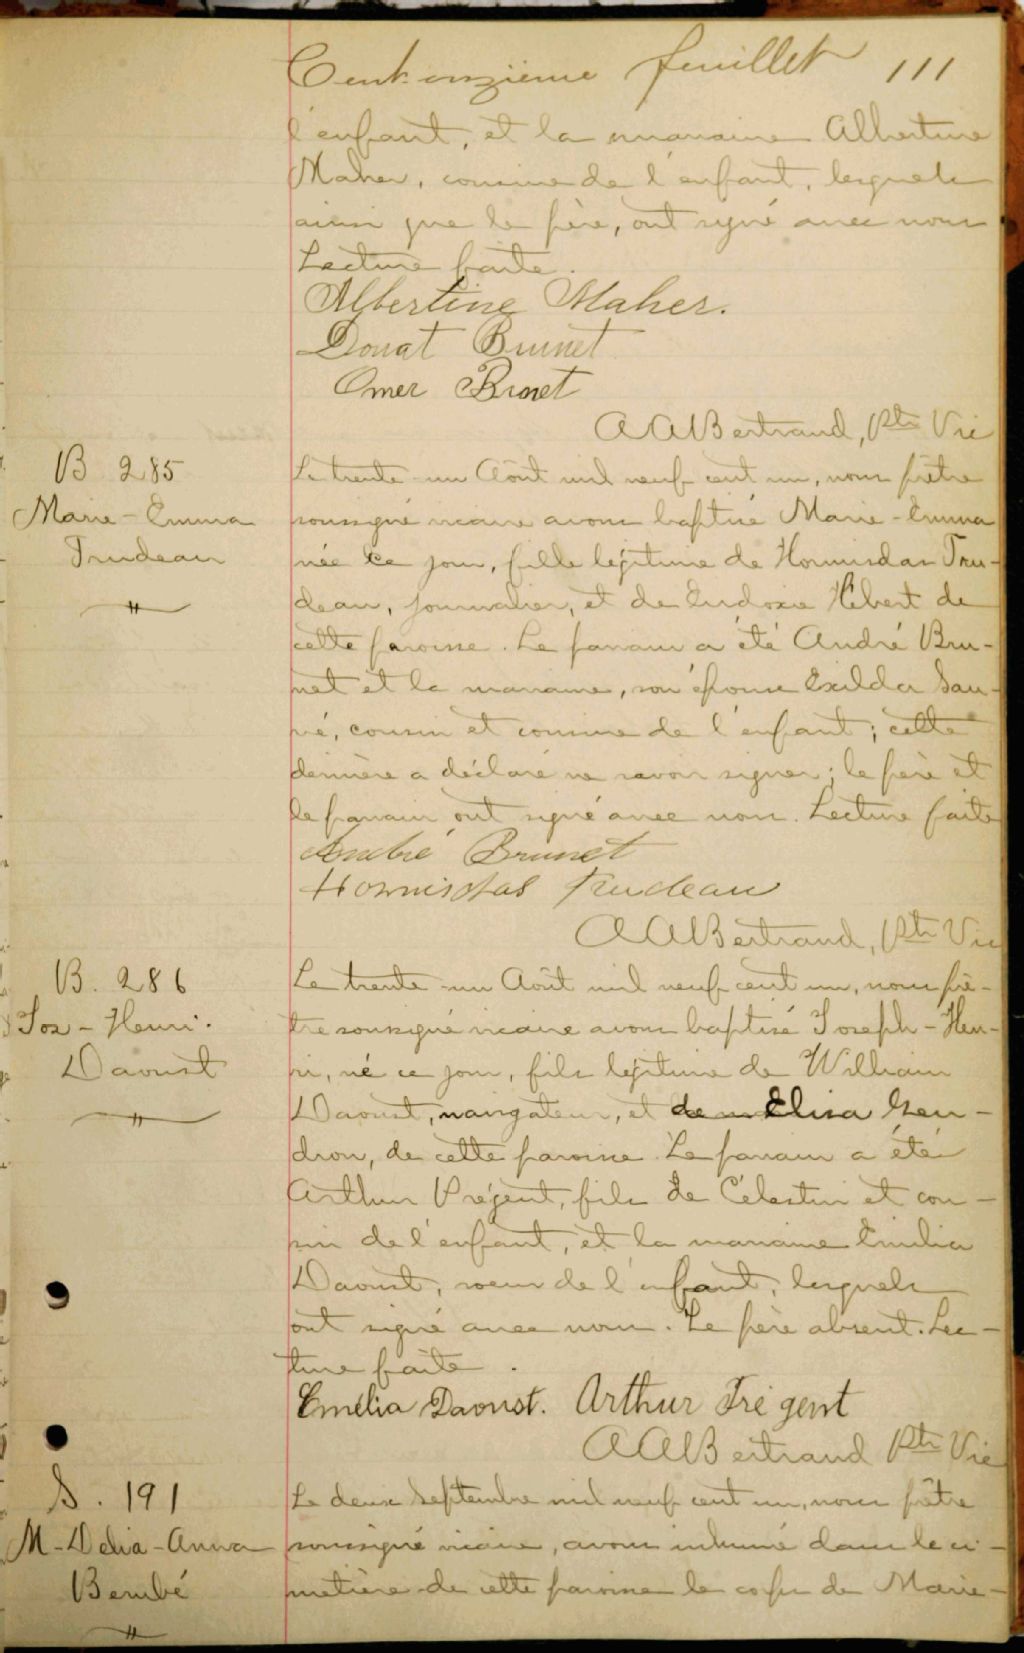 Cent-onzième feuillet 111
l'enfant, et la marraine Albertine
Maher, cousine de l'enfant, lesquels
ainsi que le père, ont signé avec nous
Lecture faite.
Albertine Maher.
Donat Brunet
Omer Brunet
AABertrand, Ptr Vic
B 285
Marie-Emma
Trudeau
Le trente-un Août mil neuf cent un, nous prêtre
soussigné vicaire avons baptisé Marie-Emma
née ce jour, fille légitime de Hormisdas Tru-
deau, journalier, et de Eudoxie Hébert de
cette paroisse. Le parrain a été André Bru-
net et la marraine, son épouse Exilda Sau-
vé, cousin et cousine de l'enfant; cette
dernière a déclaré ne savoir signer; le père et
le parrain ont signé avec nous. Lecture faite
André Brunet
Hormisdas Trudeau
AABertrand, Ptr Vic
B. 286
Jos-Henri.
Daoust
Le trente-un Août mil neuf cent un, nous prê-
tre soussigné vicaire avons baptisé Joseph-Hen-
ri, né ce jour, fils légitime de William
Daoust, navigateur, et de Elisa Gen-
dron, de cette paroisse. Le parrain a été
Arthur Prégent, fils de Célestin et cou-
sin de l'enfant, et la marraine Emilia
Daoust, soeur de l'enfant, lesquels
ont signé avec nous. Le père absent. Lec-
ture faite.
Emélia Daoust. Arthur Prégent
AABertrand Ptr Vic
S. 191
M-Delia-Anna
Bembé
Le deux Septembre mil neuf cent un, nous prêtre
soussigné vicaire, avons inhumé dans le ci-
metière de cette paroisse le corps de Marie-